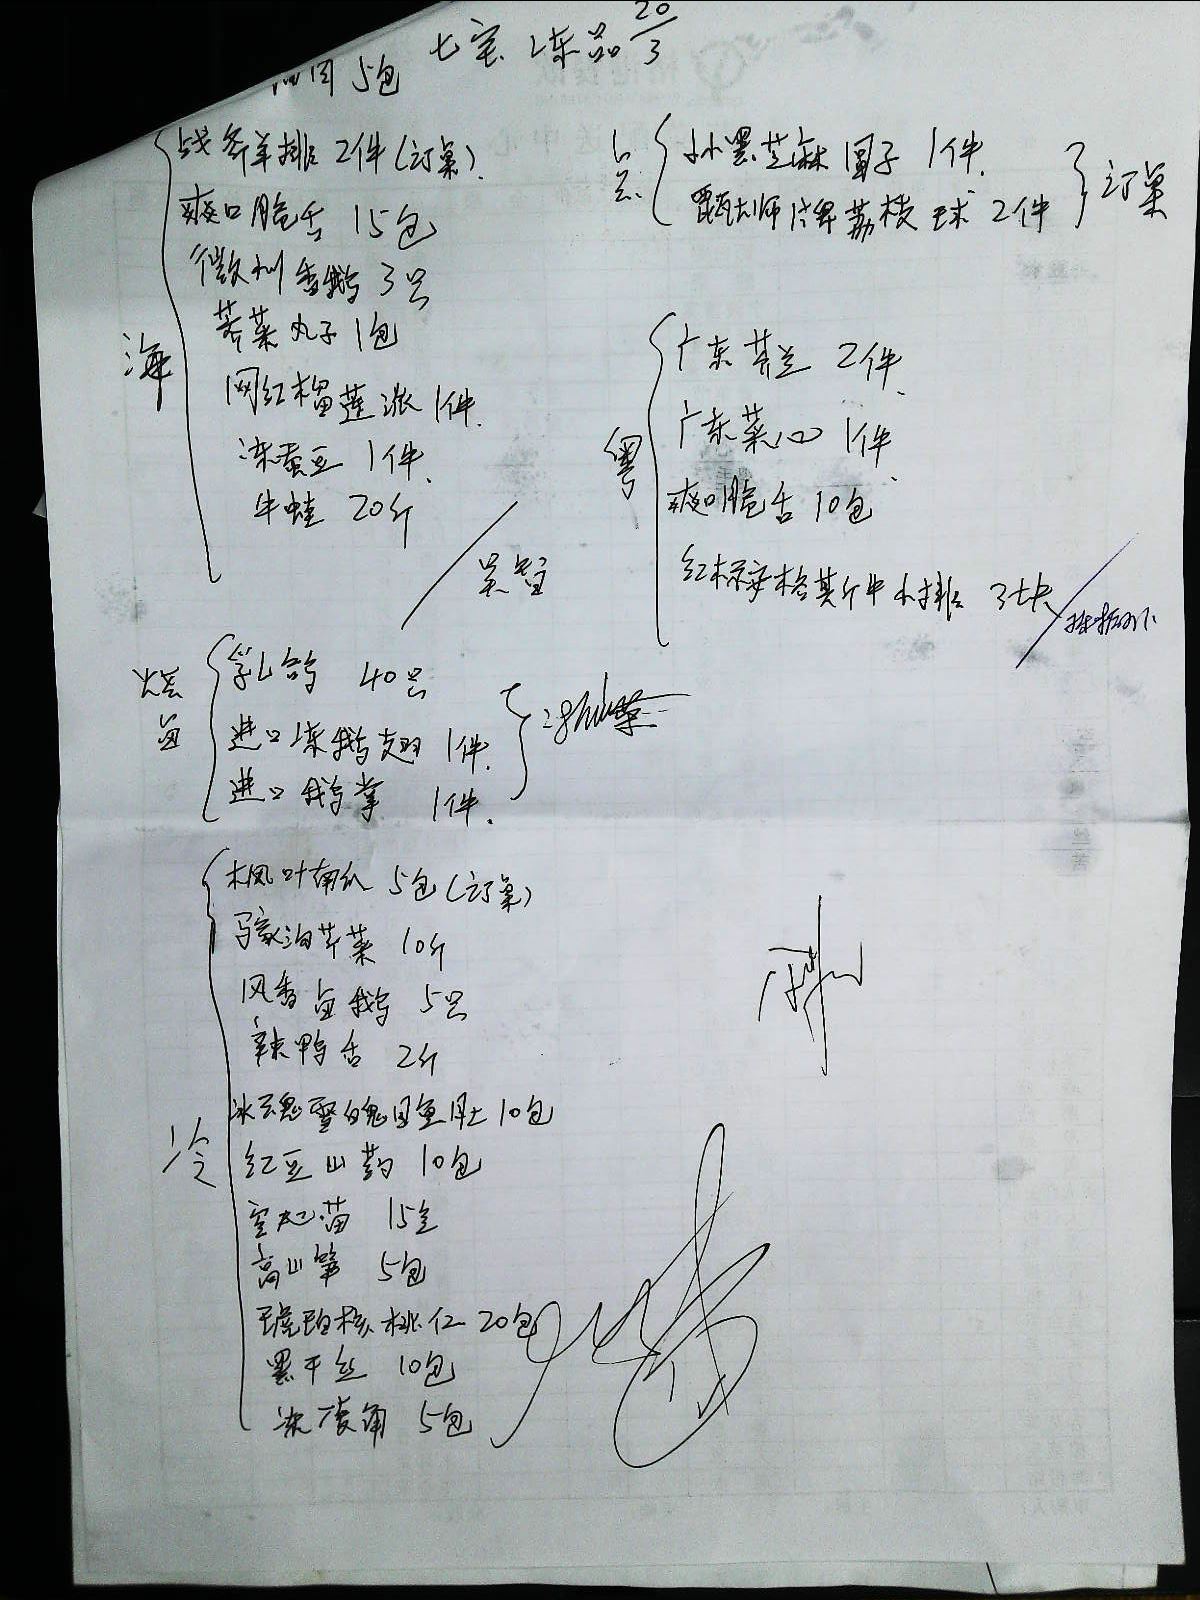 七宝 冻品 20/3
5包
海
战斧羊排 2件(订巢)
爽口脆舌 15包
徽州香鹅 3只
荠菜丸子 1包
网红榴莲派 1件
冻蚕豆 1件
牛蛙 20斤
点
小黑芝麻圆子 1件
甄大师牌荔枝球 2件
订巢
粤
广东芥兰 2件
广东菜心 1件
爽口脆舌 10包
红标安格其斤牛小排 3块
乳鸽 40只
进口冻鹅翅 1件
进口鹅掌 1件
冷
枫叶南瓜 5包(订巢)
马家沟芹菜 10斤
风香鱼鹅 5只
辣鸭舌 2斤
10包
红豆山药 10包
15包
高山笋 5包
琥珀核桃仁 20包
黑干丝 10包
冻菱角 5包